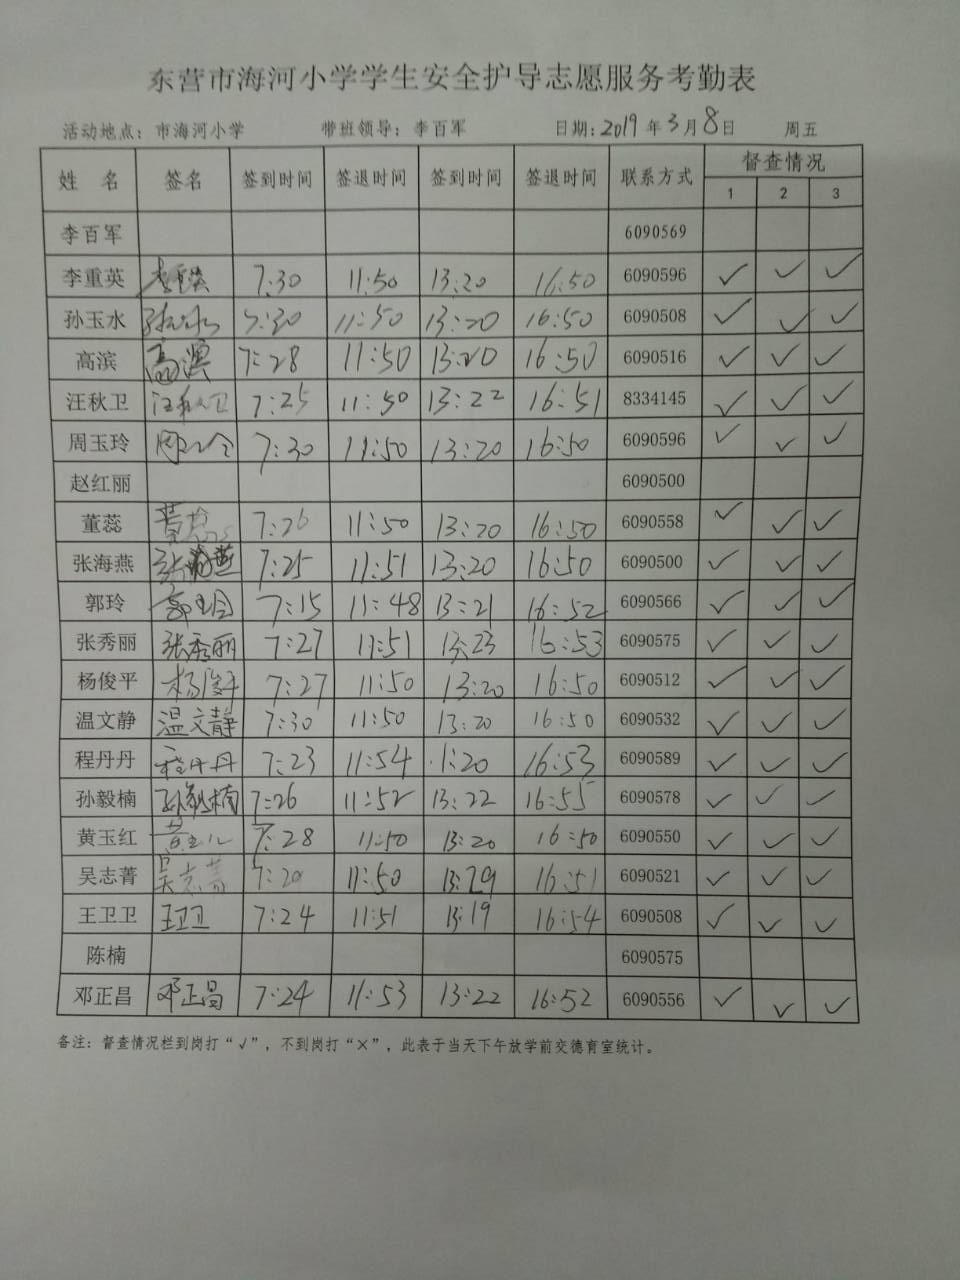 东营市海河小学学生安全护导志愿服务考勤表
活动地点：市海河小学 带班领导：李百军 日期：2019年3月8日 周五
姓 名 签名 签到时间 签退时间 签到时间 签退时间 联系方式 督查情况
1 2 3
李百军 6090569
李重英 李重英 7:30 11:50 13:20 16:50 6090596 ✓ ✓ ✓
孙玉水 11:50 13:20 16:50 6090508 ✓ ✓ ✓
高滨 高滨 7:28 11:50 13:20 16:50 6090516 ✓ ✓ ✓
汪秋卫 汪秋卫 7:25 11:50 13:22 16:51 8334145 ✓ ✓ ✓
周玉玲 7:30 11:50 13:20 16:50 6090596 ✓ ✓ ✓
赵红丽 6090500
董蕊 董蕊 7:26 11:50 13:20 16:50 6090558 ✓ ✓ ✓
张海燕 张海燕 7:25 11:51 13:20 16:50 6090500 ✓ ✓ ✓
郭玲 郭玲 7:15 11:48 13:21 16:52 6090566 ✓ ✓ ✓
张秀丽 张秀丽 7:27 11:51 13:23 16:53 6090575 ✓ ✓ ✓
杨俊平 杨俊平 7:27 11:50 13:20 16:50 6090512 ✓ ✓ ✓
温文静 温文静 7:30 11:50 13:20 16:50 6090532 ✓ ✓ ✓
程丹丹 程丹丹 7:23 11:54 1:20 16:53 6090589 ✓ ✓ ✓
孙毅楠 孙毅楠 7:26 11:52 13:22 16:55 6090578 ✓ ✓ ✓
黄玉红 7:28 11:50 13:20 16:50 6090550 ✓ ✓ ✓
吴志菁 吴志菁 11:50 13:19 16:51 6090521 ✓ ✓ ✓
王卫卫 王卫卫 7:24 11:51 13:19 16:54 6090508 ✓ ✓ ✓
陈楠 6090575
邓正昌 邓正昌 7:24 11:53 13:22 16:52 6090556 ✓ ✓ ✓
备注：督查情况栏到岗打“√”，不到岗打“×”，此表于当天下午放学前交德育室统计。